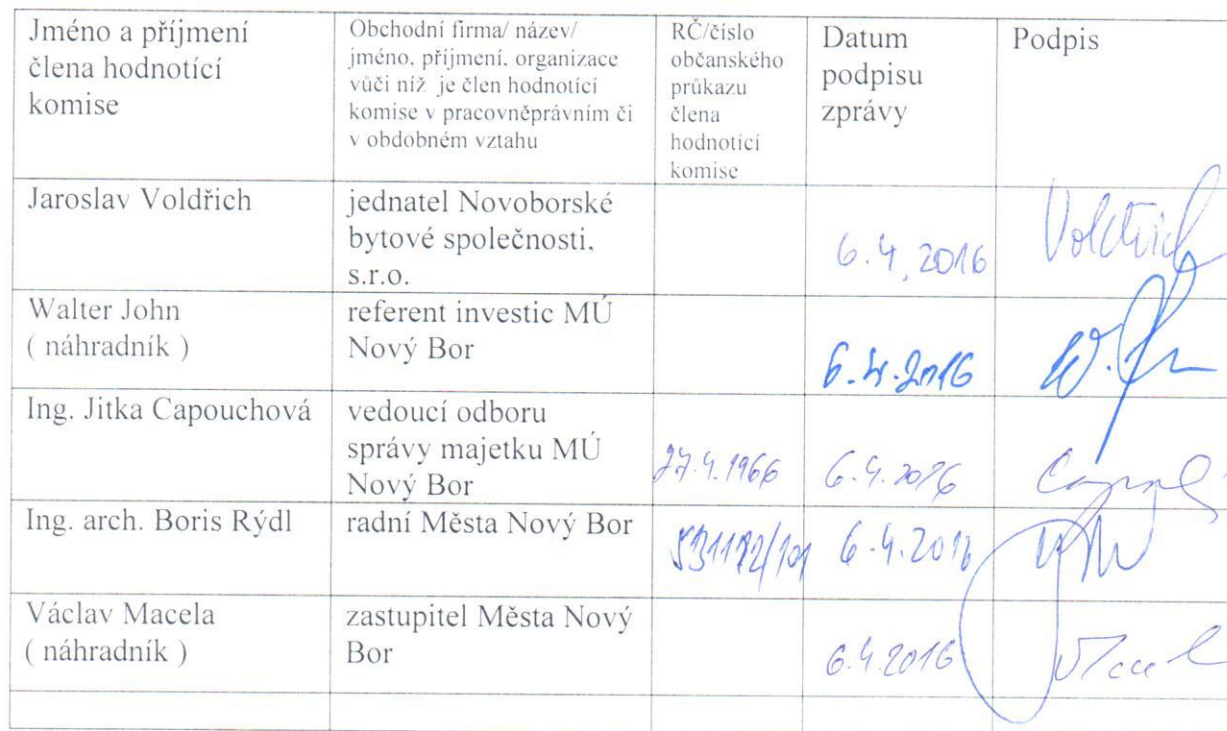 Jméno a příjmení
člena hodnotící
komise
Obchodní firma/ název/
jméno, příjmení, organizace
vůči níž je člen hodnotící
komise v pracovněprávním či
v obdobném vztahu
RČ/číslo
občanského
průkazu
člena
hodnotící
komise
Datum
podpisu
zprávy
Podpis
Jaroslav Voldřich
jednatel Novoborské
bytové společnosti,
s.r.o.
6.4.2016
Voldřich
Walter John
( náhradník )
referent investic MÚ
Nový Bor
6.4.2016
Ing. Jitka Capouchová
vedoucí odboru
správy majetku MÚ
Nový Bor
27.4.1966
6.4.2016
Ing. arch. Boris Rýdl
radní Města Nový Bor
6.4.2016
Václav Macela
( náhradník )
zastupitel Města Nový
Bor
6.4.2016